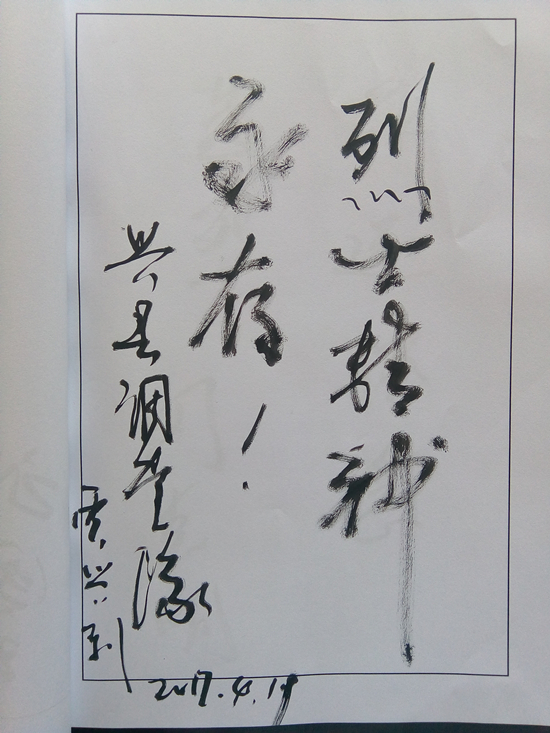 烈士精神
永存！
兴县调查队
贾兴利
2017.4.19